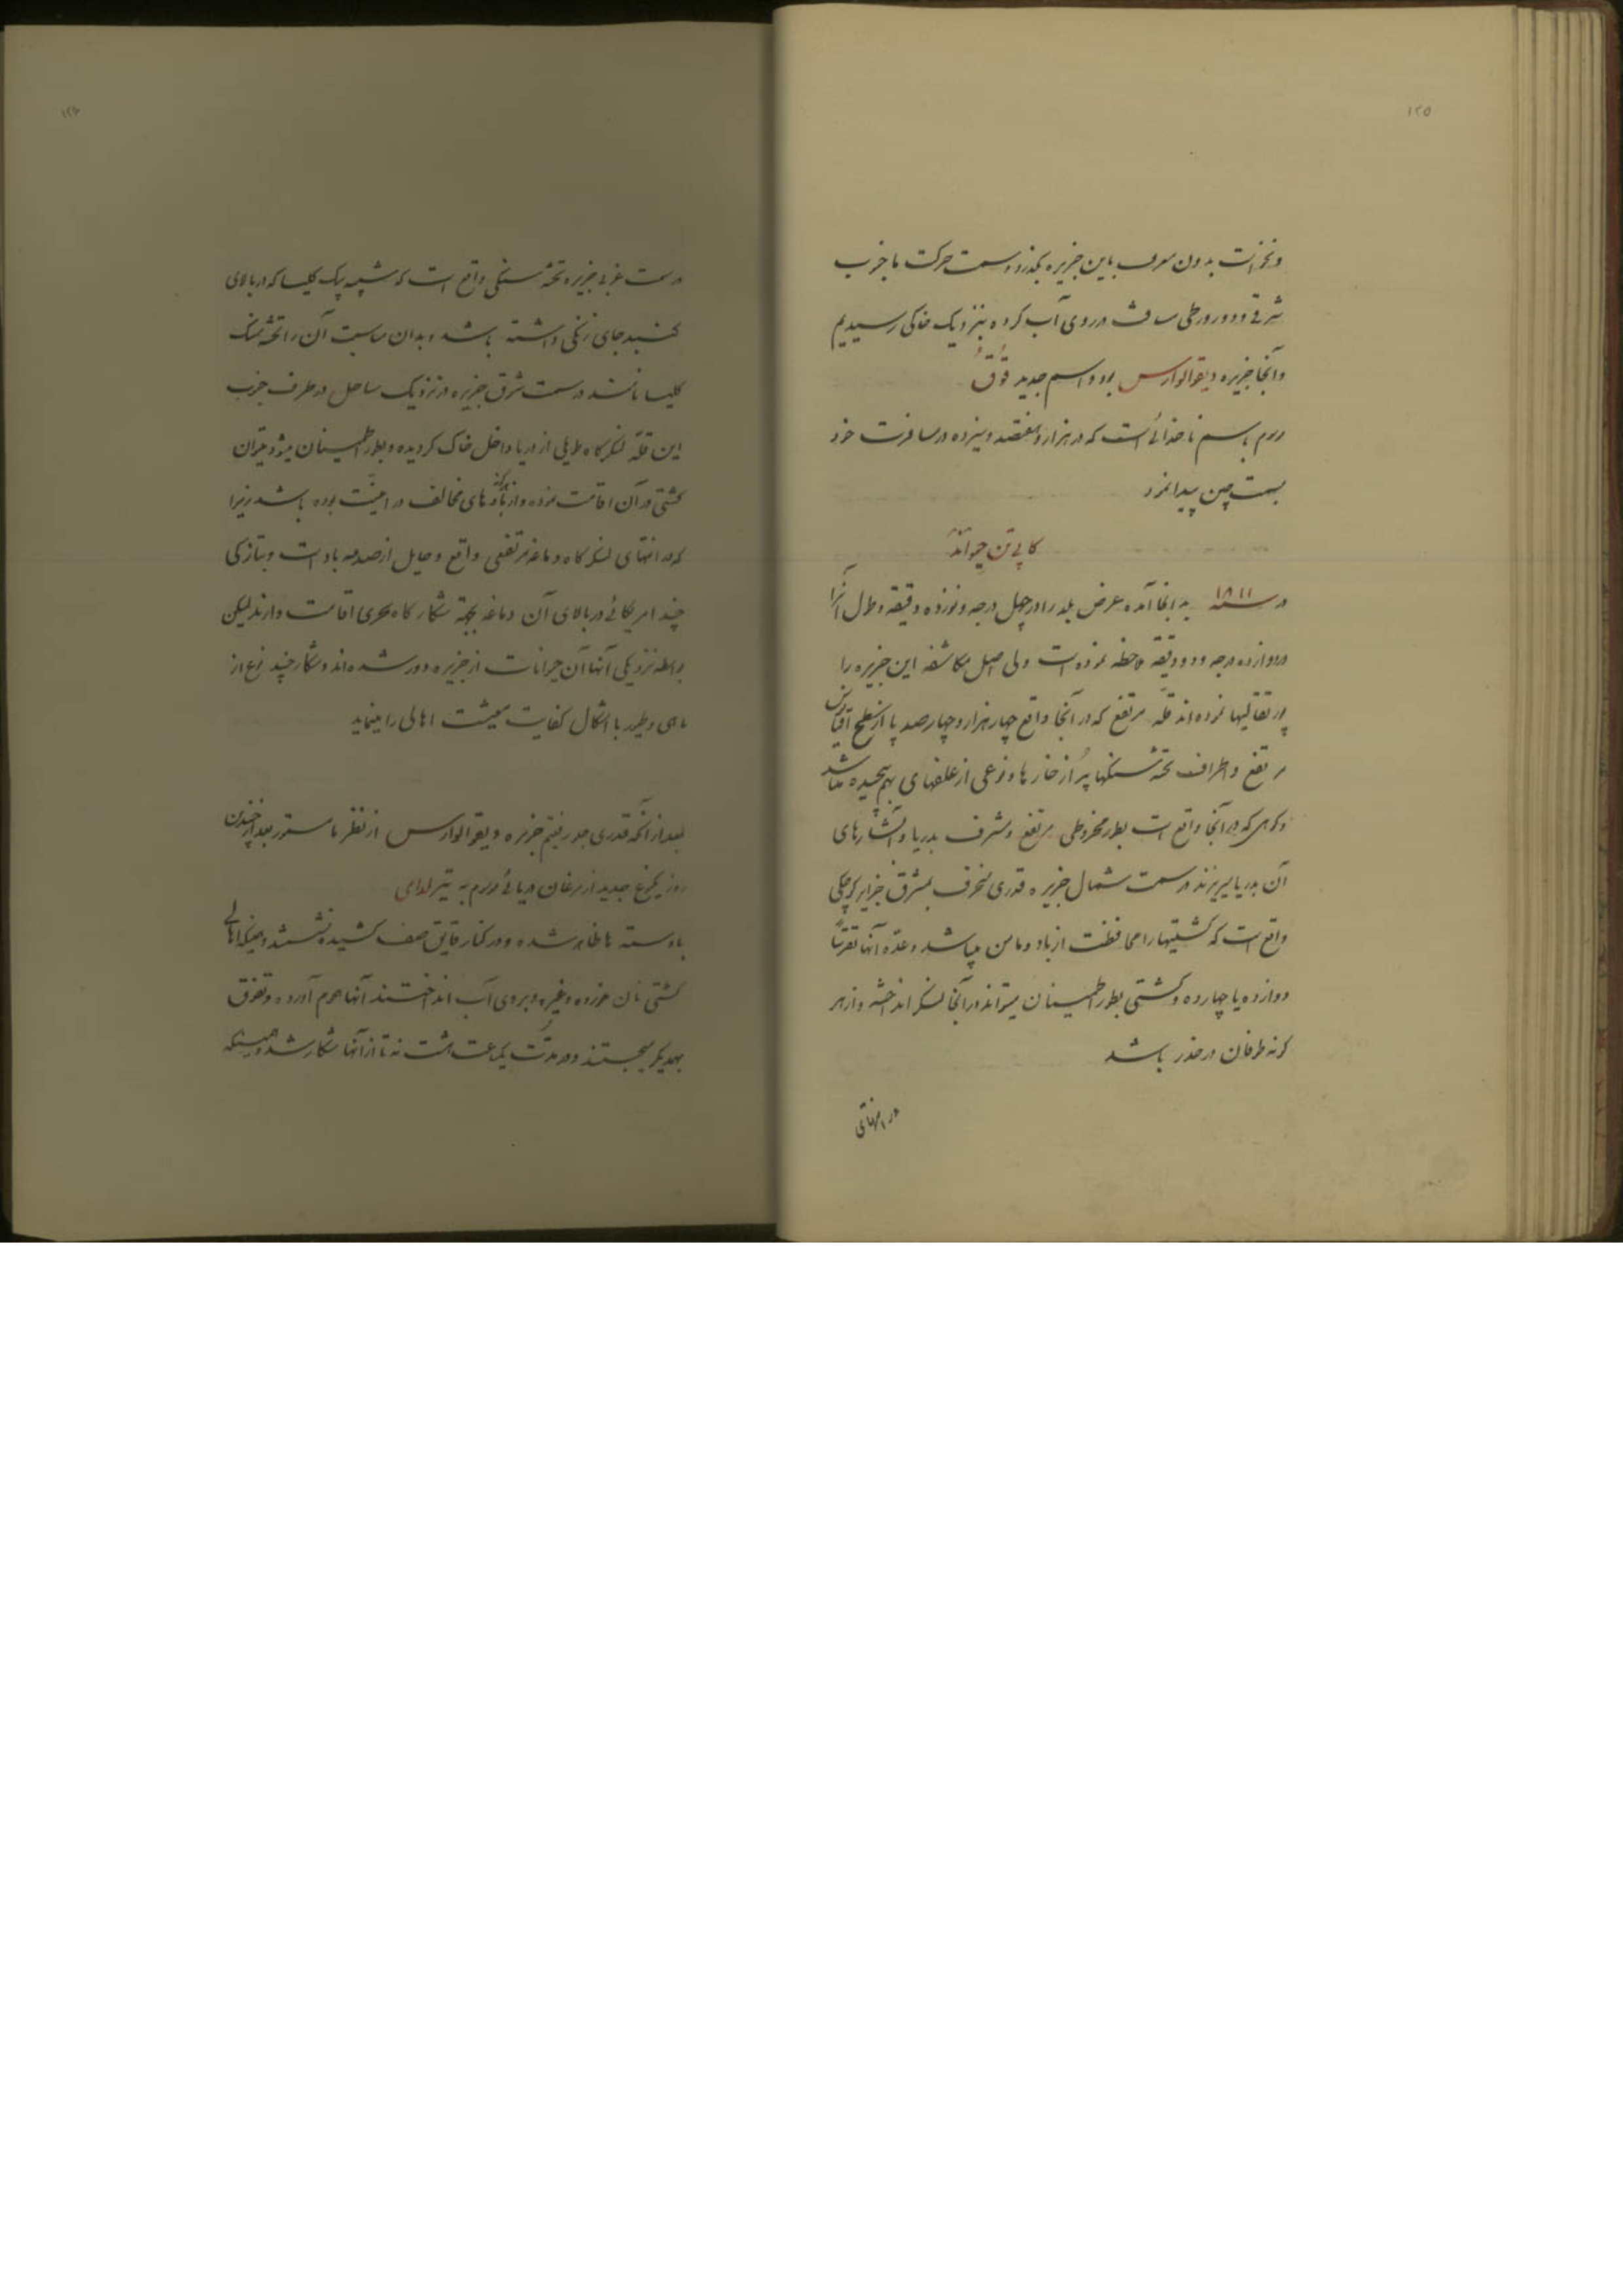 ۱۲۵
ونخواست بدون معرف باین جزیره بگذرد و سمت حرکت ما جنوب
شرقی و دو روز طی مسافت در روی آب کرده بنزدیک خاکی رسیدیم
و آنجا جزیره دیقوالوارس بود و اسم جدید قوق
موسوم باسم ناخدائی است که در هزار و هفتصد و سیزده در مسافرت خود
بسمت چین پیدا نمود
کاپی تن
در سنه ۱۸۱۱ به آنجا آمده عرض بلد را در چهل درجه و نوزده دقیقه و طول آنرا
در دوازده درجه و دو دقیقه ملاحظه نموده است ولی اصل مکاشفه این جزیره را
پورتقالیها نموده‌اند قله مرتفع که در آنجا واقع چهار هزار و چهار صد پا از سطح اقیانوس
مرتفع و اطراف تخته سنگها پُر از خارها و نوعی از علفهای بهم پیچیده میباشد
و کوهی که در آنجا واقع است بطور مخروطی مرتفع و مشرف بدریا و آبشارهای
آن بدریا میریزند در سمت شمال جزیره قدری منحرف بمشرق جزایر کوچکی
واقع است که کشتیها را محافظت از باد و مامن میباشد و عدّه آنها تقریباً
دوازده یا چهارده و کشتی بطور اطمینان میتواند در آنجا لنگر انداخته و از هر
گونه طوفان در حذر باشد
در انتهای
۱۲۶
در سمت غربی جزیره تخته سنگی واقع است که شبیه بیک کلیسا که در بالای
گنبد جای زنگی داشته باشد و بدان مناسبت آن را تخته سنگ
کلیسا نامند در سمت شرق جزیره در نزدیک ساحل در طرف جنوب
این قلّه لنگرگاه طویلی از دریا داخل خاک گردیده و بطور اطمینان میشود میتوان
کشتی در آن اقامت نموده و از بادهای مخالف در امنیّت بوده باشد زیرا
که در انتهای لنگرگاه دماغه مرتفعی واقع و حایل از صدمه باد است و بتازگی
چند امریکائی در بالای آن دماغه بجهة شکار گاه بحری اقامت دارند لیکن
بواسطه نزدیکی آنها آن حیوانات از جزیره دور شده‌اند و شکار چند نوع از
ماهی و طیور با اشکال کفایت معیشت اهالی را مینماید
بعد از آنکه قدری جلو رفتیم جزیره دیقوالوارس از نظر ما مستور بعد از چندین
روز یکنوع جدید از مرغان دریائی موسوم به
با دسته ها ظاهر شده و در کنار قایق صف کشیده نشستند و همینکه اهالی
کشتی نان خورده و غیره بروی آب انداختند آنها هجوم آورده و تفوق
بهمدیگر میجستند و در مدّت یکساعت هشت نه تا از آنها شکار شد و همینکه